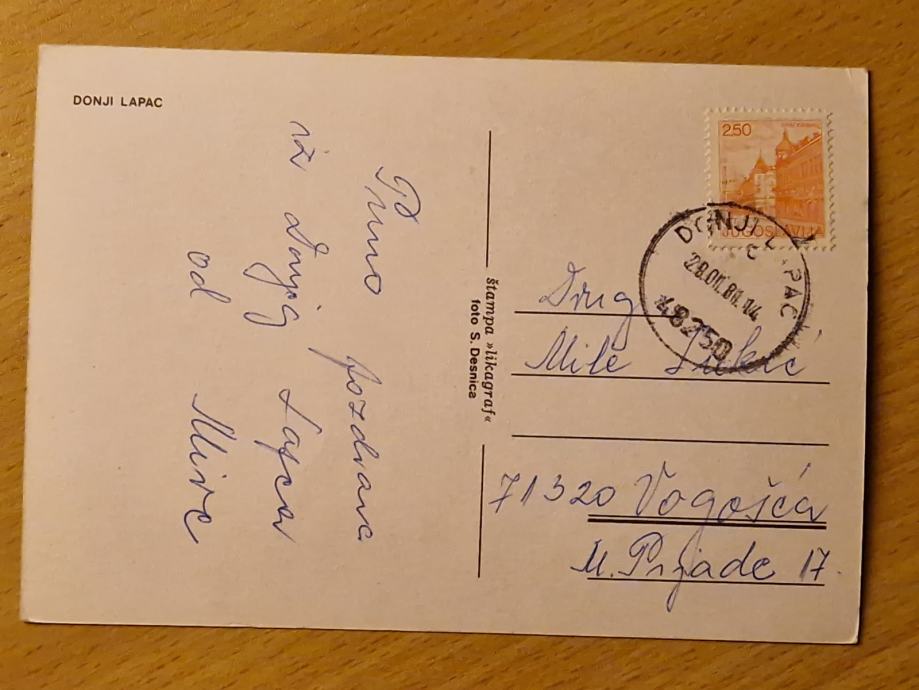 DONJI LAPAC
Puno pozdrava
iz Donjeg Lapca
od Mirc
štampa »likagraf«
foto S. Desnica
2.50
JUGOSLAVIJA
DONJI LAPAC
28.01.81.14
48250
Drug
Mile
71320 Vogošća
M. Prijade 17.